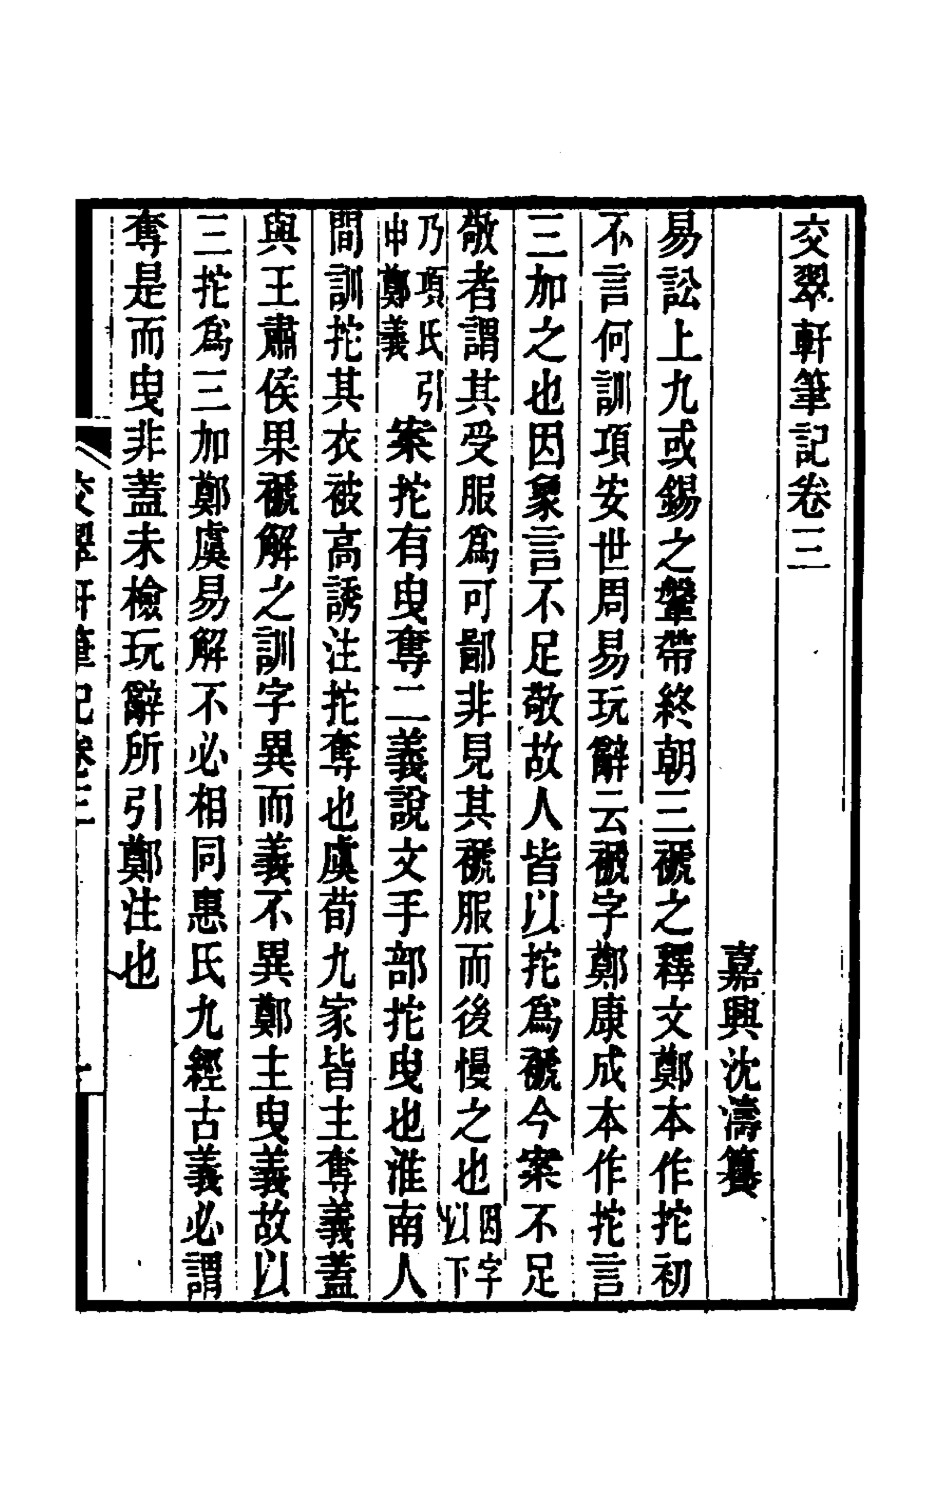 交翠軒筆記卷三
嘉興沈濤纂
易訟上九或錫之鞶帶終朝三褫之釋文鄭本作拕初
不言何訓項安世周易玩辭云褫字鄭康成本作拕言
三加之也因象言不足敬故人皆以拕爲褫今案不足
敬者謂其受服爲可鄙非見其褫服而後慢之也因字以下
乃項氏引申鄭義案拕有曳奪二義說文手部拕曳也淮南人
間訓拕其衣被高誘注拕奪也虞荀九家皆主奪義蓋
與王肅侯果褫解之訓字異而義不異鄭主曳義故以
三拕爲三加鄭虞易解不必相同惠氏九經古義必謂
奪是而曳非蓋未檢玩辭所引鄭注也
交翠軒筆記卷三
一